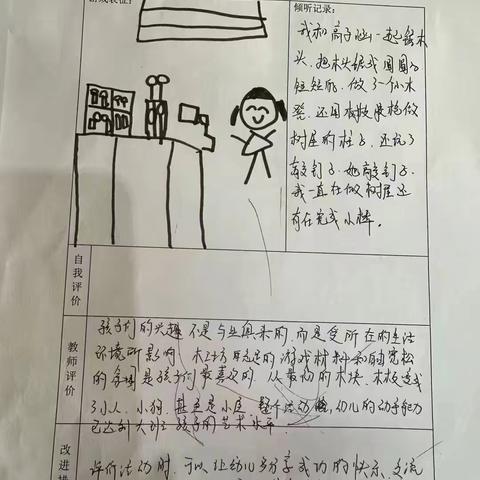 游戏表征:
倾听记录:
我和高子一起锯木
头,把木头锯成圆圆
短短的,做了一个小木
凳,还用树枝来做
树屋的柱子,还玩了
敲钉子,她敲钉子,
我一直在做树屋还
有在完成小
自我评价
教师评价
孩子们的兴趣不是与生俱来的,而是受所在的生活
环境所影响,木工坊里充足的游戏材料和自由宽松
的是孩子们最喜欢的,从最初的木块、木板变成
了小人、小狗,甚至是小区,整个活动,幼儿的动手能力
已达到大班孩子的艺术水平
改进措
评价活动时,可以让幼儿多分享成功的快乐,交流